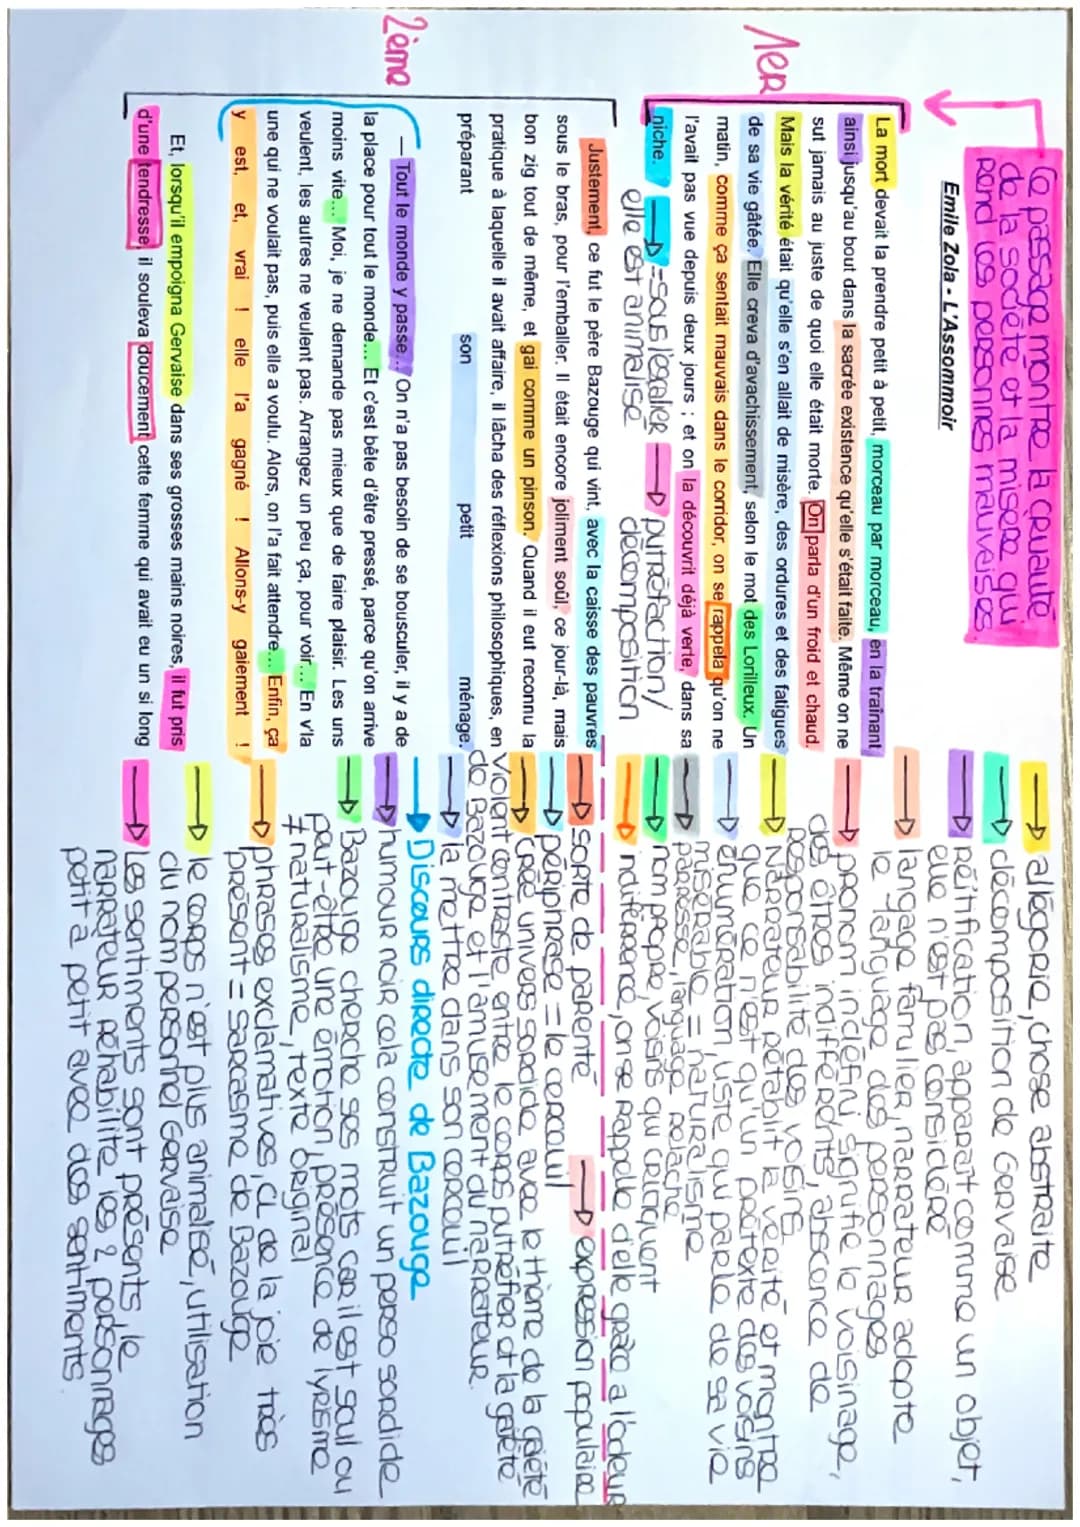 Ce passage montre la cruauté
de la société et la misère qui
rend les personnes mauvaises.
Emile Zola - L'Assommoir
1er
La mort devait la prendre petit à petit, morceau par morceau, en la traînant
ainsi jusqu'au bout dans la sacrée existence qu'elle s'était faite. Même on ne
sut jamais au juste de quoi elle était morte. On parla d'un froid et chaud.
Mais la vérité était qu'elle s'en allait de misère, des ordures et des fatigues
de sa vie gâtée. Elle creva d'avachissement, selon le mot des Lorilleux. Un
matin, comme ça sentait mauvais dans le corridor, on se rappela qu'on ne
l'avait pas vue depuis deux jours ; et on la découvrit déjà verte, dans sa
niche. → = sous l'escalier → putréfaction/
elle est animalisé décomposition
2ème
Justement, ce fut le père Bazouge qui vint, avec la caisse des pauvres
sous le bras, pour l'emballer. Il était encore joliment soûl, ce jour-là, mais
bon zig tout de même, et gai comme un pinson. Quand il eut reconnu la
pratique à laquelle il avait affaire, il lâcha des réflexions philosophiques, en
préparant son petit ménage.
— Tout le monde y passe... On n'a pas besoin de se bousculer, il y a de
la place pour tout le monde... Et c'est bête d'être pressé, parce qu'on arrive
moins vite... Moi, je ne demande pas mieux que de faire plaisir. Les uns
veulent, les autres ne veulent pas. Arrangez un peu ça, pour voir... En v'la
une qui ne voulait pas, puis elle a voulu. Alors, on l'a fait attendre... Enfin, ça
y est, et, vrai ! elle l'a gagné ! Allons-y gaiement !
Et, lorsqu'il empoigna Gervaise dans ses grosses mains noires, il fut pris
d'une tendresse, il souleva doucement cette femme qui avait eu un si long
→ allégorie, chose abstraite
→ décomposition de Gervaise
→ Réification, apparaît comme un objet,
elle n'est pas considéré
→ langage familier, narrateur adopte
le language des personnages
→ pronom indéfini, signifie le voisinage,
des êtres indifférents, abscence de
responsabilité des voisins
→ Narrateur rétablit la vérité et montre
que ce n'est qu'un prétexte des voisins
→ énumération, liste qui parle de sa vie
misérable = naturalisme
→ paresse, language relaché
→ nom propre, voisins qui critiquent
→ indifférence, on se rappelle d'elle grâce a l'odeur
→ sorte de parenté → expression populaire
→ périphrase = le cercueil
→ Crée univers sordide avec le thème de la gaiété
Violent contraste entre le corps putréfier et la gaiété
de Bazouge et l'amusement du narrateur.
→ la mettre dans son cercueil
→ Discours directe de Bazouge
→ humour noir cela construit un perso sordide
→ Bazouge cherche ses mots car il est soul ou
peut-être une émotion, présence de lyrisme
≠ naturalisme, texte original
→ phrases exclamatives, CL de la joie très
présent = sarcasme de Bazouge
→ le corps n'est plus animalisé, utilisation
du nom personnel Gervaise
→ Les sentiments sont présents, le
narrateur réhabilite les 2 personnages
petit a petit avec des sentiments.